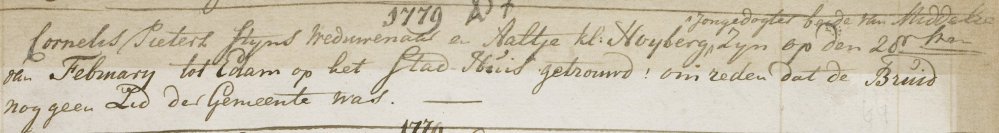 1779
Jongedogter beide van Middelie
Cornelis Pieters Styns Weduwenaar en Aaltje kl: Hoyberg, Zyn op den 28
van February tot Edam op het Stad Huis getrouwd: om reden dat de Bruid
nog geen Lid der Gemeente was.